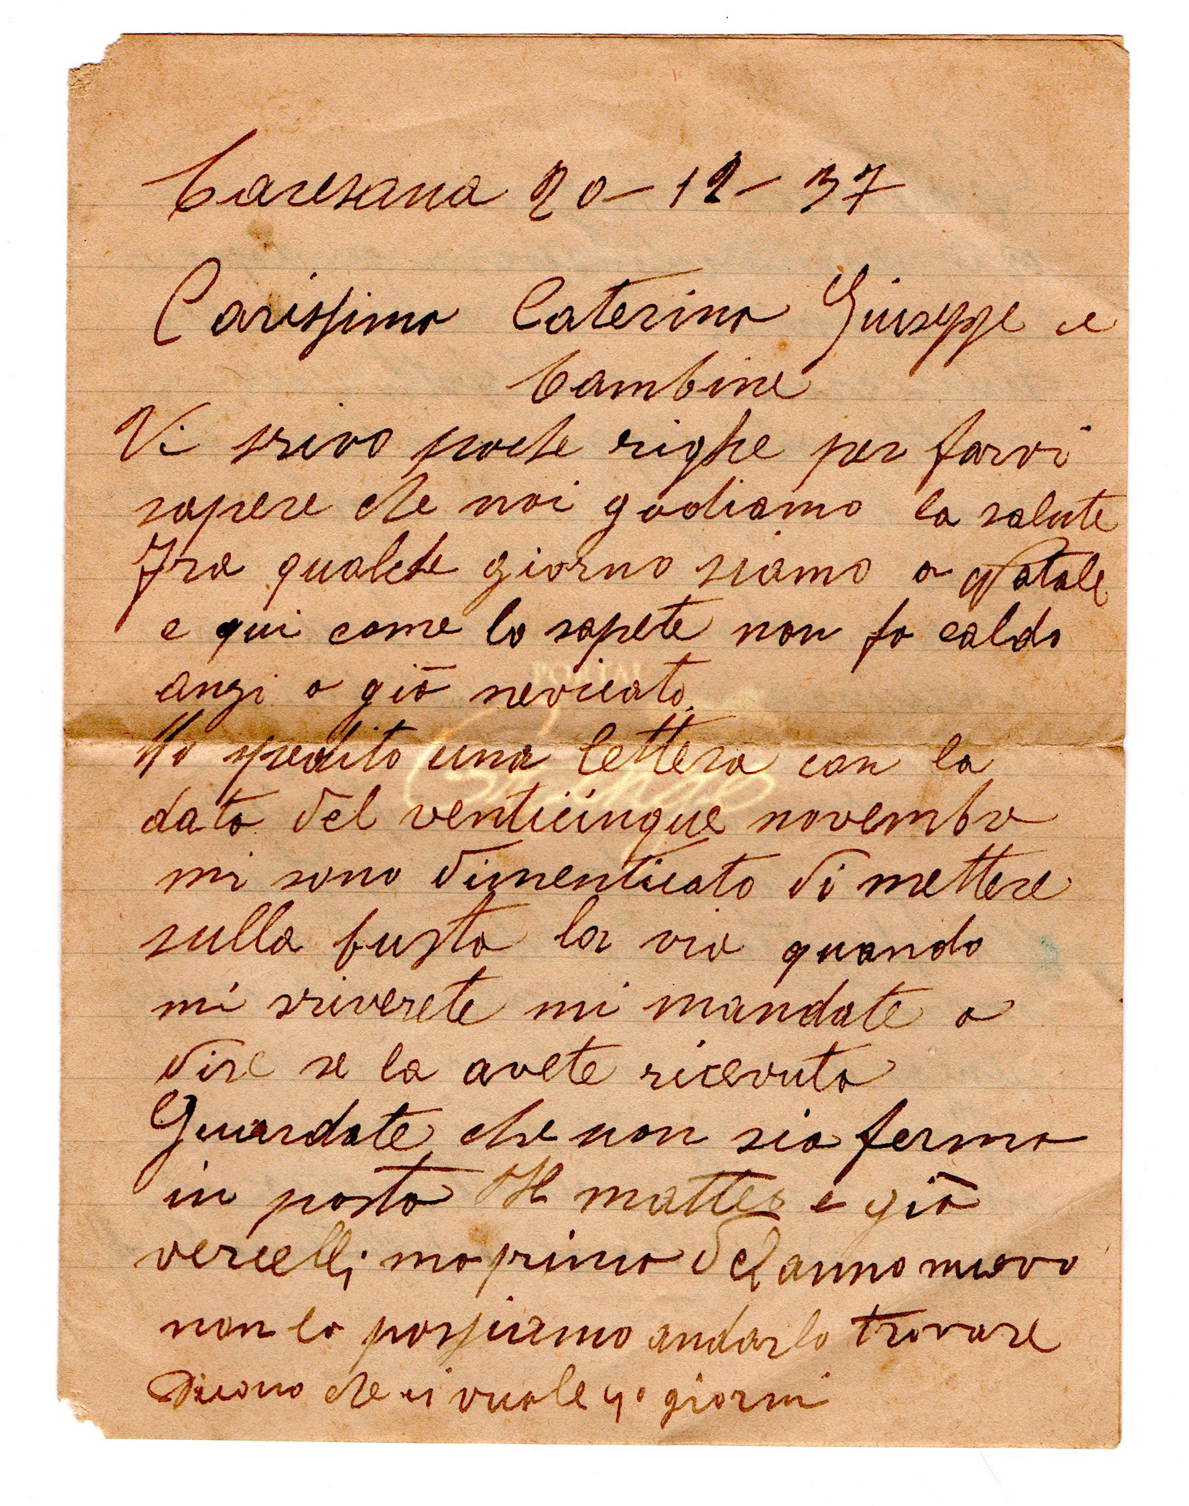 Caresana 20-12-37
Carissima Caterina Giuseppe e
bambine
Vi srivo poche righe per farvi
sapere che noi godiamo la salute
Fra qualche giorno siamo a Natale
e qui come lo sapete non fa caldo
anzi a già nevicato
Ho spedito una lettera con la
data del venticinque novembre
mi sono dimenticato di mettere
sulla busta la via quando
mi sriverete mi mandate a
dire se la avete ricevuta
Guardate che non sia ferma
in posta Il matteo e già
vercelli ma prima del anno nuovo
non lo possiamo andarlo trovare
Dicono che ci vuole 40 giorni